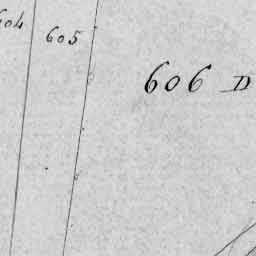 604
605
606 D